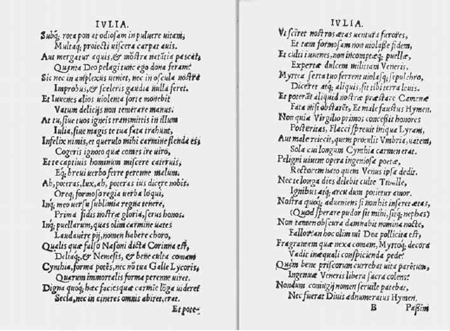 IVLIA.
Subq́; rogo pon at odiosam in puluere uitam,
Multaq́; proiecti uiscera carpat auis.
Aut mergatur aquis, & nostra nutilia pascat,
Quamia Deo pelagi tunc ego dona feram!
Sic nec in amplexus ueniet, nec in oscula nostra
Improbus, & sceleris gaudia nulla feret.
Et Iuuenes alios uiolenta forte monebit
Vatum delicijs non temerare manus.
At tu, siue tuos igneis transmittis in illum
Iulia, siue magis te tua fata trahunt,
Infelix nimis, et querula mihi carmine flenda es,
Cogeris ignoto quæ comes ire uiro,
Et te captiuis hominum miscere cateruis,
Eq́; breui uerbo ferre perenne malum.
Ah, poteras, lux, ah, poteras ius dicere nobis.
Oreq́; formoso regia uerba loqui,
Inq́; meo uersu sublimia regna tenere,
Prima sidis nostræ gloria, serus honos.
Inq́; puellarum, quas olim carmine uates
Laudauère pij, nomen habere choro,
Qualis quæ falso Nasoni dicta Corinna est,
Deliaq́;, & Nemesis, & bene culta comam
Cynthia, forma potẽs, nec nõ tua Galle Lycoris,
Quarum immortalis forma perenne uiret.
Digna quoq́; hac facies quæ carmĩe lõga uideret
Secla, nec in cineres omnis abiret, erat.
Et pote-
IVLIA.
Vt sciret nostros ætas uentura furores,
Et tam formosam non uiolasse fidem,
Et culti iuuenes, non incomptæq́; puellæ,
Expertæ dulcem militiam Veneris.
Myrtea serta tuo ferrent uiolasq́; sepulchro,
Dicere atq́; aliquis, sit tibi terra leuis.
Et poterãt aliquid nostræ præstare Camenæ
Fata nisi obstarẽt, & male faustus Hymen.
Non quia Virgilio primos concessit honores
Posteritas, Flacci spreuit inique Lyram,
Aut male reiecit, quem protulit Vmbria, uatem,
Sola cui longum Cynthia carmen erat.
Peligni uiuent opera ingeniosa poetæ,
Rectorem uato quem Venus ipsa dedit.
Nec te longa dies delebit culte Tibulle,
Ignibus atq́; arcu dum potietur amor.
Nostra quoq́; adueniens si nobis inseret ætas,
(Quod sperare pudor sit mihi, sitq́; nephas)
Non tamen obscura damnabit nomina nocte,
Fallor? an hoc olim mi Dea pollicita est,
Fragrantem quæ nexa comam, Myrtoq́; decora
Vadit inæquali conspicienda pede?
Quam bene priscorum currebat uita parẽtum,
Ingenuæ Veneris libera sacra colens!
Nondum coniugij nomen seruile patebat,
Nec fuerat Diuis adnumeratus Hymen.
B
Passim